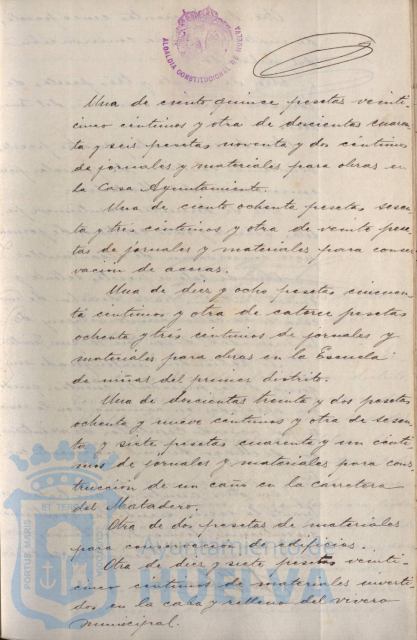 ALCALDIA CONSTITUCIONAL DE HUELVA
Una de ciento quince pesetas veinti-
cinco céntimos y otra de doscientas cuaren-
ta y seis pesetas noventa y dos céntimos
de jornales y materiales para obras en
la Casa Ayuntamiento.
Una de ciento ochenta pesetas sesen-
ta y tres céntimos y otra de veinte pese-
tas de jornales y materiales para conser-
vación de aceras.
Una de diez y ocho pesetas cincuen-
ta céntimos y otra de catorce pesetas
ochenta y tres céntimos de jornales y
materiales para obras en la Escuela
de niñas del primer distrito.
Una de doscientas treinta y dos pesetas
ochenta y nueve céntimos y otra de sesen-
ta y siete pesetas cuarenta y un cénti-
mos de jornales y materiales para cons-
trucción de un caño en la carretera
del Matadero.
Otra de dos pesetas de materiales
para conservación de edificios.
Otra de diez y siete pesetas veinti-
cinco céntimos de materiales inverti-
dos en la casa y relleno del vivero
municipal.
PORTUS MARIS ET TERRAE
Ayuntamiento de
HUELVA